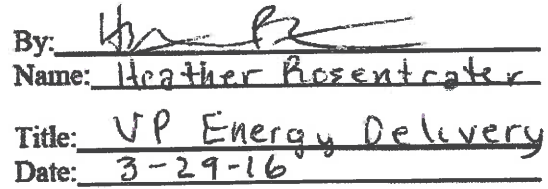 By:
Name: Heather Rosentrater
Title: VP Energy Delivery
Date: 3-29-16